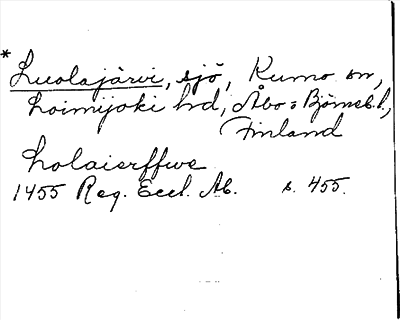 *
Luolajärvi, sjö, Kumo sn,
Loimijoki hd, Åbo o Björneb. l.,
Finland
Lolaierffwe
1455 Reg. Eccl. Ab. s. 455.